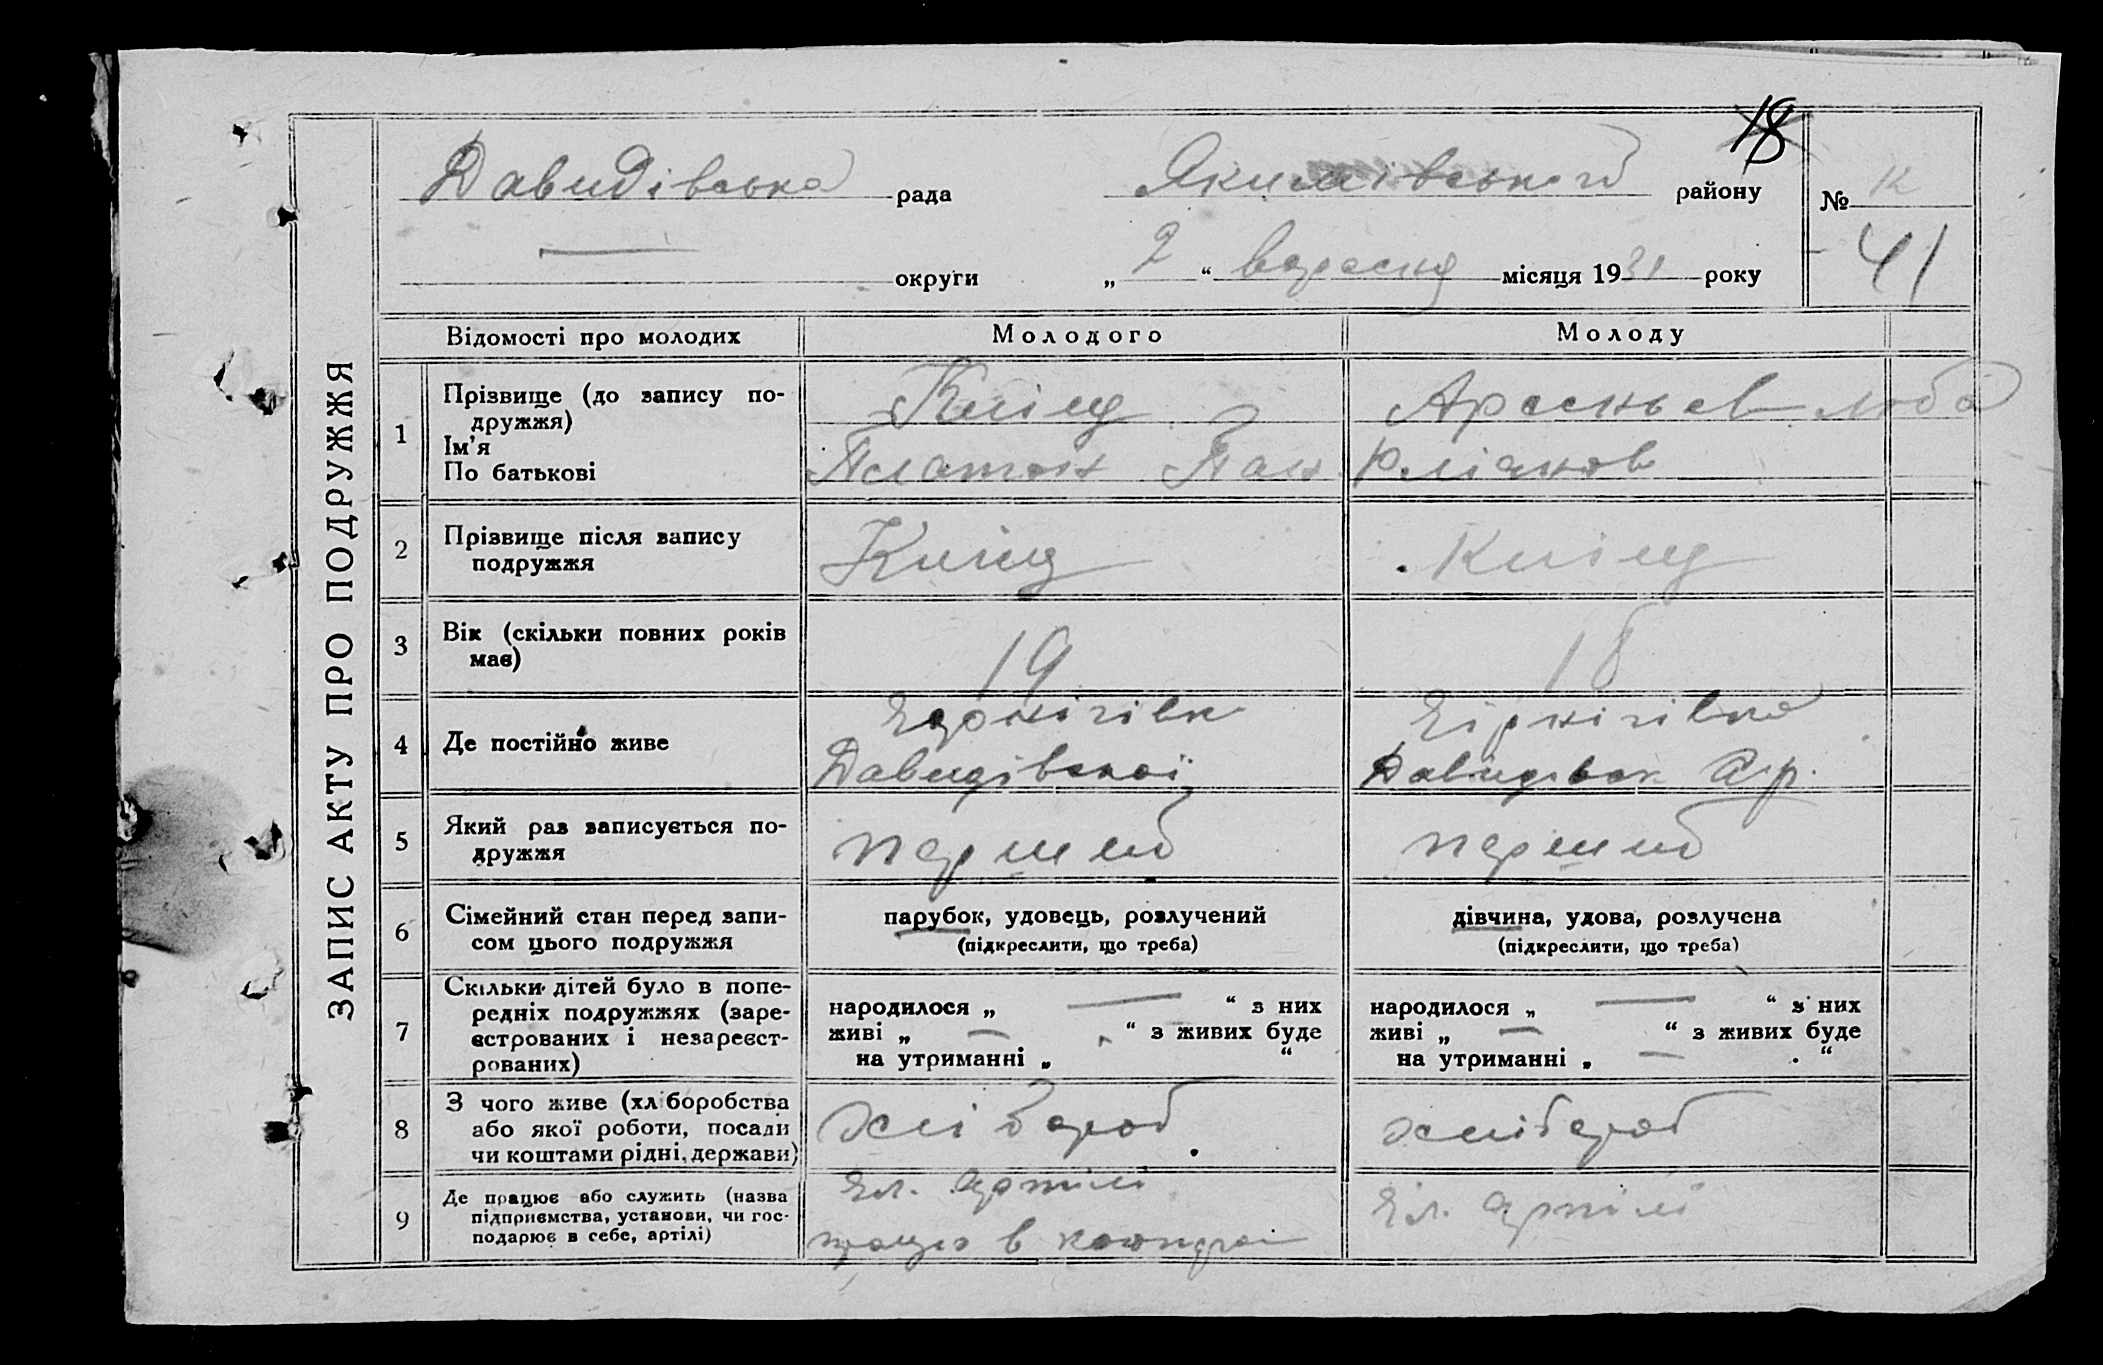 18
Давидівська рада Якимівського району № 12
округи „ 2 “ вересня місяця 1931 року 41
ЗАПИС АКТУ ПРО ПОДРУЖЖЯ
Відомості про молодих Молодого Молоду
1 Прізвище (до запису по-
дружжя)
Ім'я
По батькові
Платон Пан
2 Прізвище після запису
подружжя
3 Вік (скільки повних років
має)
19 18
4 Де постійно живе
Давидівської Давидівськ
5 Який раз записується по-
дружжя
перший перший
6 Сімейний стан перед запи-
сом цього подружжя
парубок, удовець, розлучений
(підкреслити, що треба)
дівчина, удова, розлучена
(підкреслити, що треба)
7 Скільки дітей було в попе-
редніх подружжях (заре-
єстрованих і незареєст-
рованих)
народилося „ — “ з них
живі „ — “ з живих буде
на утриманні „ “
народилося „ — “ з них
живі „ — “ з живих буде
на утриманні „ — “
8 З чого живе (хліборобства
або якої роботи, посади
чи коштами рідні, держави)
хлібороб хлібороб
9 Де працює або служить (назва
підприємства, установи, чи гос-
подарює в себе, артілі)
артілі
працює в
артілі